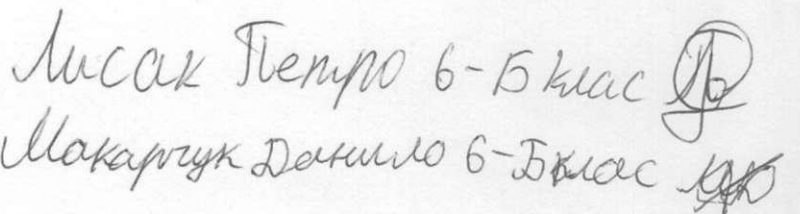 Лисак Петро 6-Б клас
Макарчук Данило 6-Б клас